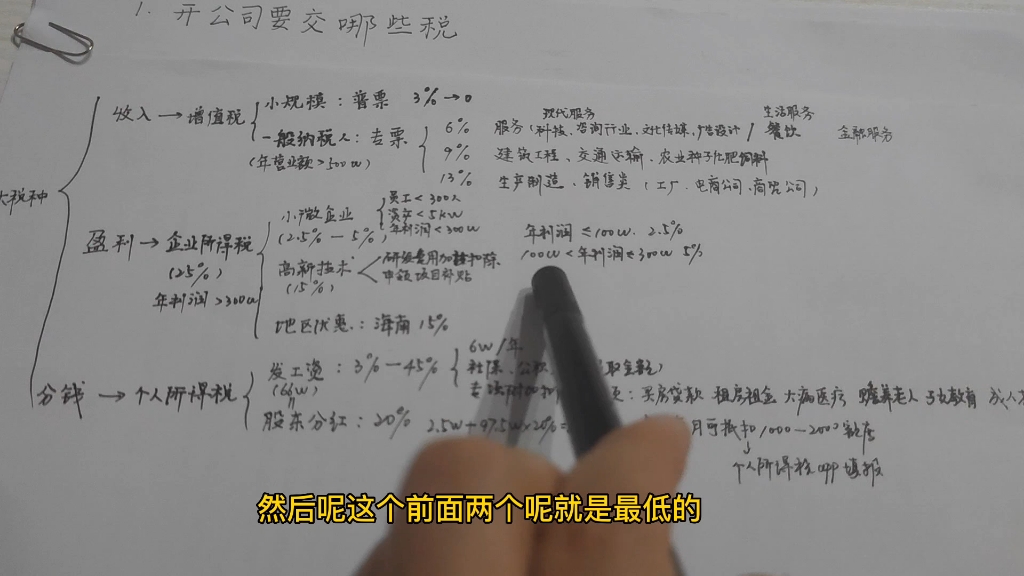 1. 开公司要交哪些税
大税种
收入→增值税
小规模：普票 3%→0
一般纳税人：专票
(年营业额>500w)
6% 服务(科技、咨询行业、文化传媒、广告设计/餐饮 金融服务
现代服务 生活服务
9% 建筑工程、交通运输、农业种子化肥饲料
13% 生产制造、销售类(工厂、电商公司、商贸公司)
盈利→企业所得税
(25%)
年利润>300w
小微企业
(2.5%-5%)
员工<300人
资产<5kw
年利润<300w
年利润≤100w. 2.5%
100w<年利润≤300w 5%
高新技术
(15%)
研发费用加计扣除
申领项目补贴
地区优惠：海南15%
分钱→个人所得税
发工资：3%-45%
6w/年
社保、公积
：买房贷款 租房租金 大病医疗 赡养老人 子女教育 成人
股东分红：20% 2.5w+97.5w×20%=
月可抵扣1000-2000额度
↓
个人所得税app填报
然后呢这个前面两个呢就是最低的